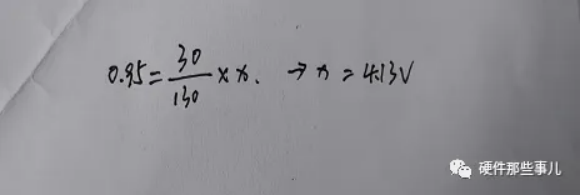 0.95 = 30/130 × x. → x = 4.13V
硬件那些事儿